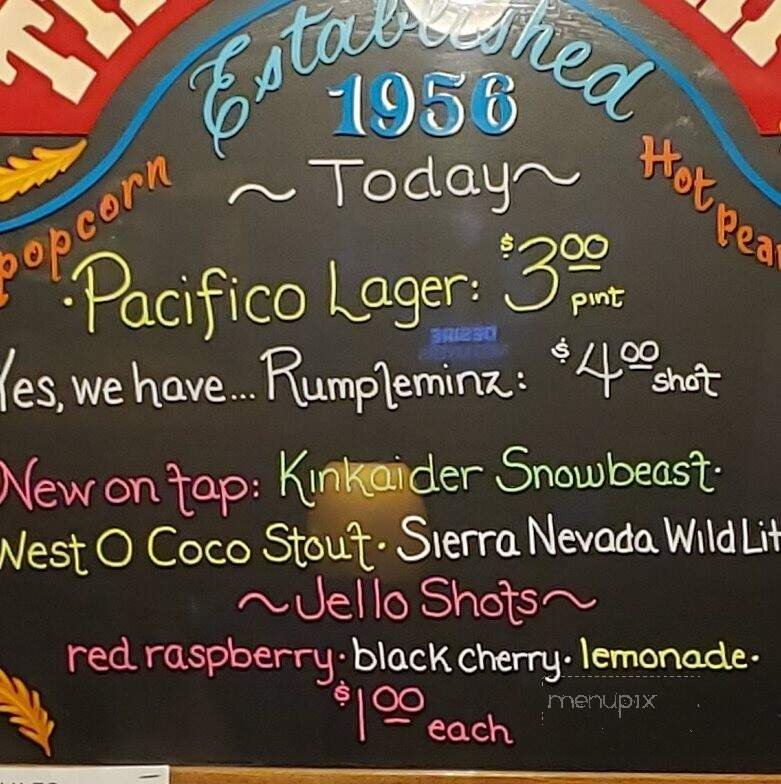 Established
1956
~ Today ~
popcorn
Hot
· Pacifico Lager: $3.00 pint
Yes, we have... Rumpleminz: $4.00 shot
New on tap: Kinkaider Snowbeast·
West O Coco Stout· Sierra Nevada Wild
~Jello Shots~
red raspberry· black cherry· lemonade·
$1.00 each
menupix